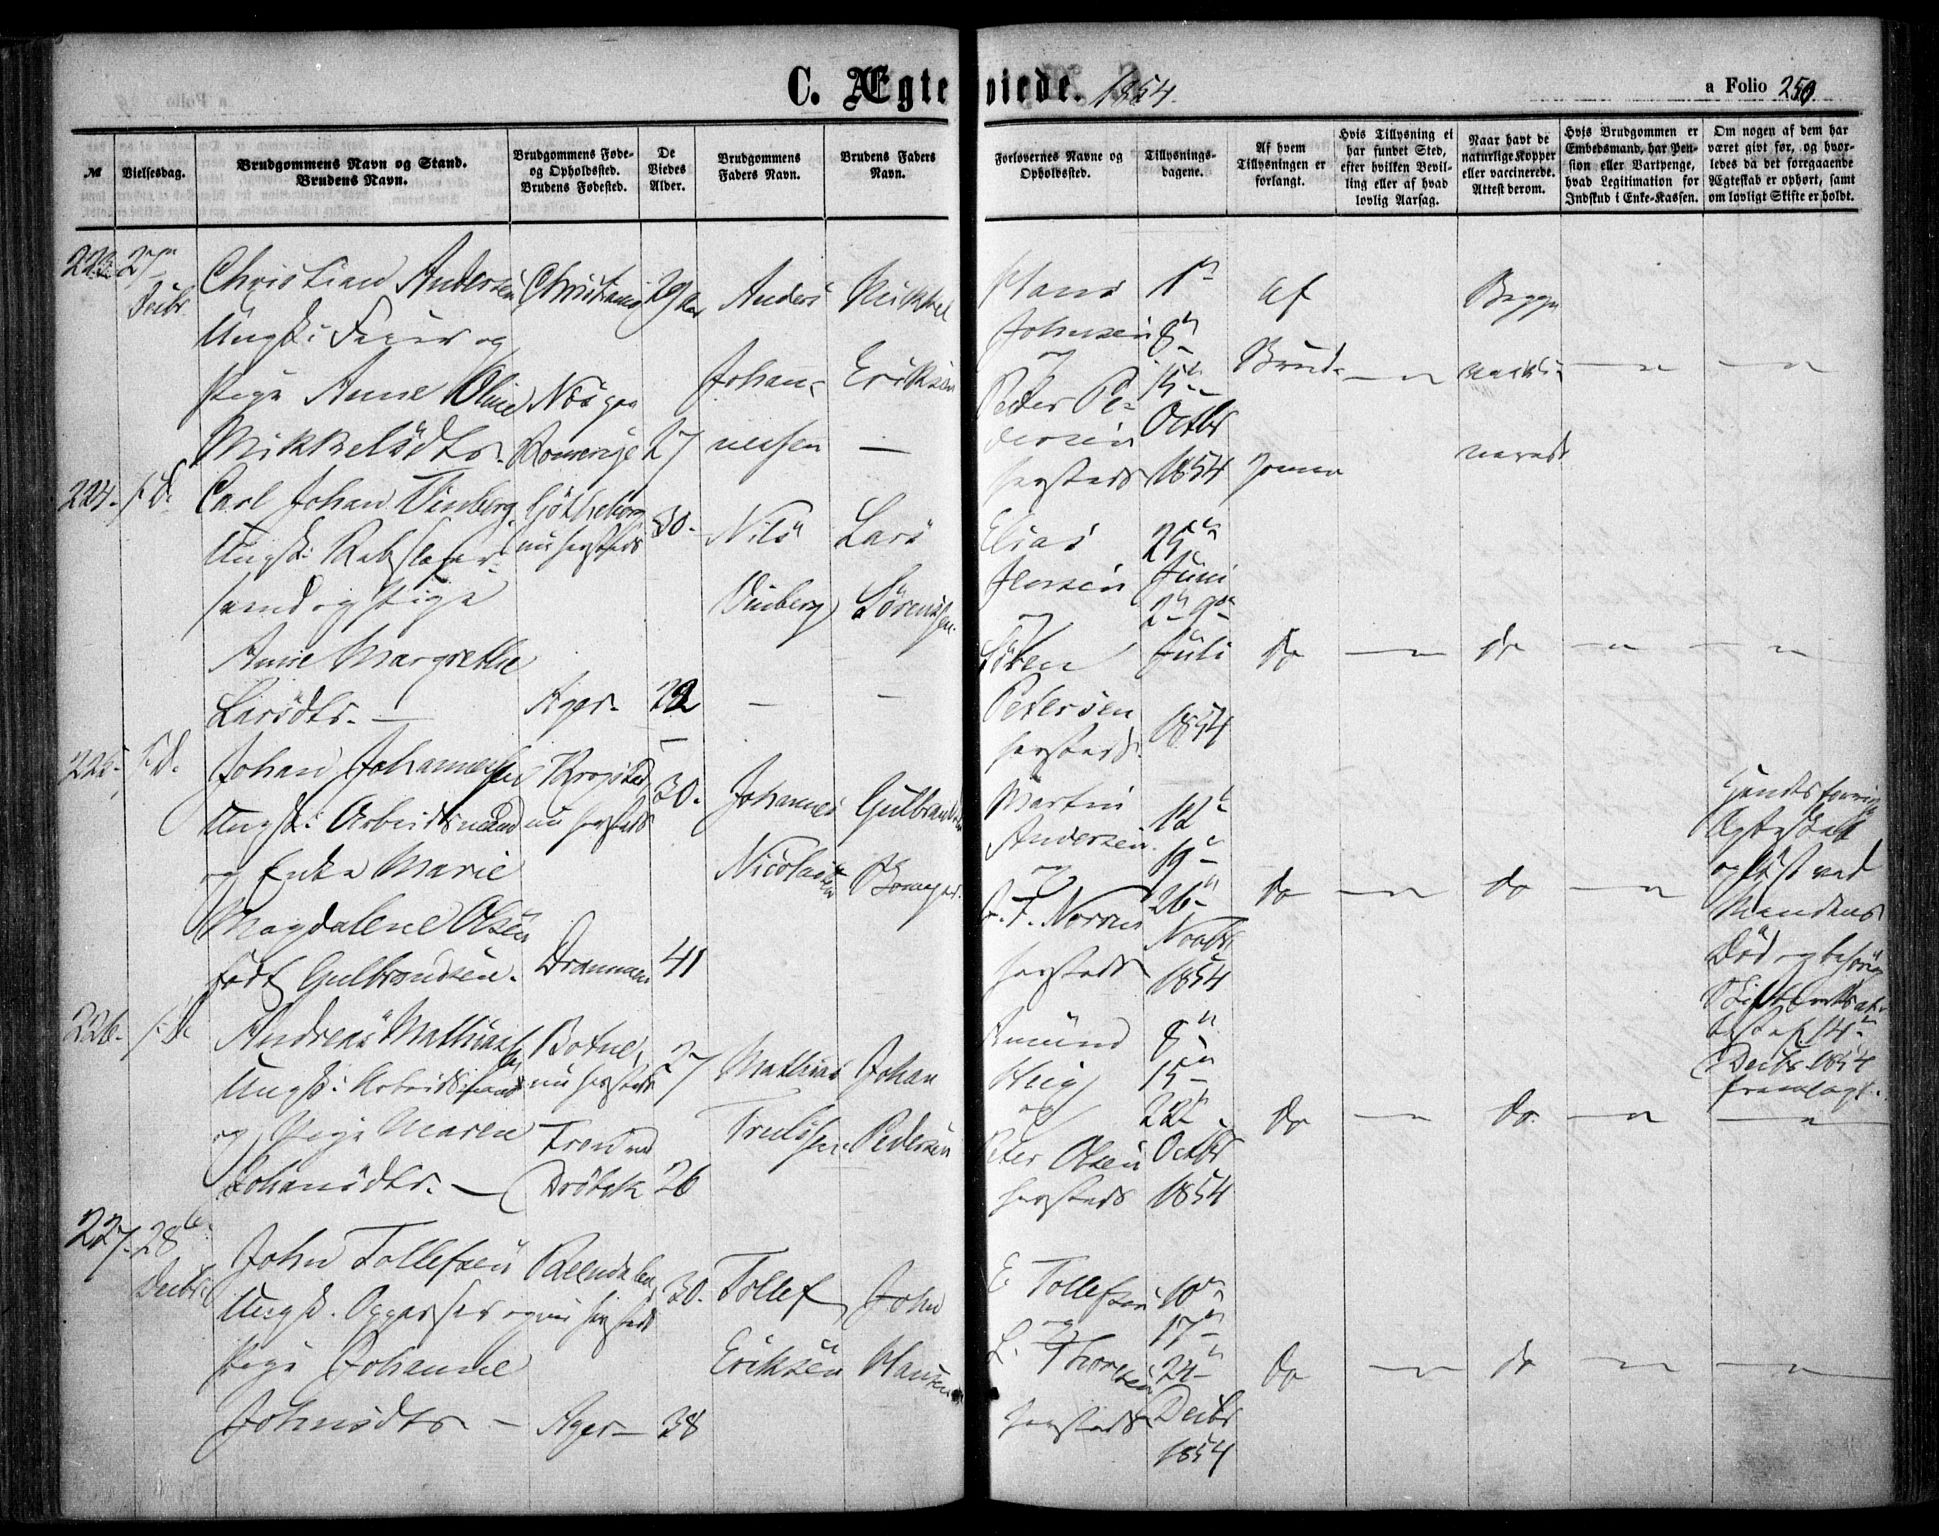 C. Ægteviede. 1854.
a Folio 250.
№
Vielsesdag.
Brudgommens Navn og Stand.
Brudens Navn.
Brudgommens Føde-
og Opholdssted.
Brudens Fødested.
De
Viedes
Alder.
Brudgommens
Faders Navn.
Brudens Faders
Navn.
Forlovernes Navne og
Opholdssted.
Tillysnings-
dagene.
Af hvem
Tillysningen er
forlangt.
Hvis Tillysning ei
har fundet Sted,
efter hvilken Bevil-
ling eller af hvad
lovlig Aarsag.
Naar havt de
naturlige Kopper
eller vaccinerede.
Attest derom.
Hvis Brudgommen er
Embedsmand, har Pen-
sion eller Vartpenge,
hvad Legitimation for
Indskud i Enke-Kassen.
Om nogen af dem har
været givt før, og hvor-
ledes da det foregaaende
Ægteskab er ophørt, samt
om lovligt Skifte er holdt.
223. 27
Decbr.
Christian Andersen
Ungk: Feier og
Pige Anne Oline
Mikkelsdtr.
Christiania
Næs paa
Romerige
29 Aar
27
Anders
Johan-
nessen
Mikkel
Eriksen
—
Hans
Johnsen
og
Peter Pe-
dersen
hersteds
1
8
15
Octbr
1854
Af
Brud-
gommen
— " —
Begge
vacci-
nerede
— " —
— " —
224. s. D.
Carl Johan Vinberg
Ungk: Rebslager-
svend og Pige
Anne Margrethe
Larsdtr. —
Gøtheborg
nu hersteds
Ager.
30.
22
Nils
Vinberg
—
Lars
Sørensen.
—
Elias
Jensen
og
Søren
Petersen
hersteds.
25
Juni
2 9
Juli
1854
do
— " —
do
— " —
— " —
225. s. D.
Johan Johannessen
Ungk: Arbeidsmand
og Enke Marie
Magdalene Olsen
født Gulbrandsen.
Krogstad
nu hersteds
Drammen
30.
41
Johannes
Nicolaisen
Gulbrand
Martin
Andersen.
og
hersteds
12
19
26
Novbr
1854
do
— " —
do
— " —
Hendes forrige
Ægteskab
opløst ved
Mandens
Død og behørig
Skifteretsat-
test af 14
Decbr 1854
fremlagt.
226. s. D.
Andreas Mathiassen
Ungk: Arbeidsmand
og Pige Maren
Johansdtr. —
Botne,
nu hersteds
Fron ved
Drøbak
27
26
Mathias
Trulssen.
Johan
Pedersen
Amund
Heig
og
Peter Olsen
hersteds
8
15
22
Octbr
1854
do
— " —
do.
— " —
— " —
227. 28
Decbr.
John Tollefsen
Ungk. Oppasser og
Pige Johanne
Johnsdtr —
Rendalen
nu hersteds
Ager —
30.
38
Tollef
Eriksen
John
Hansen
E Tollefsen
og
L. Thoresen
hersteds
10
17
24
Decbr
1854
do
— " —
do
— " —
— " —